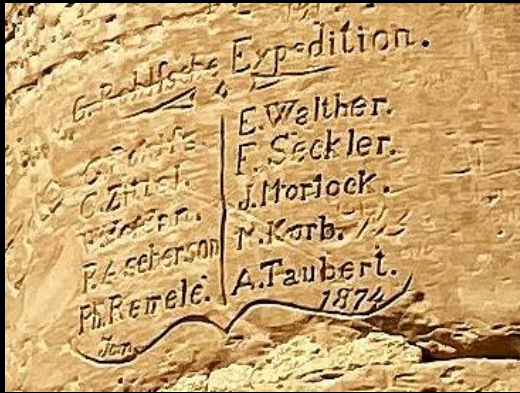 G. Rohlfsche Expedition.
G. Rohlfs.
C. Zittel.
Jordan.
P. Ascherson
Ph. Remelé.
E. Walther.
F. Seckler.
J. Morlock.
M. Korb.
A. Taubert.
Jan. 1874